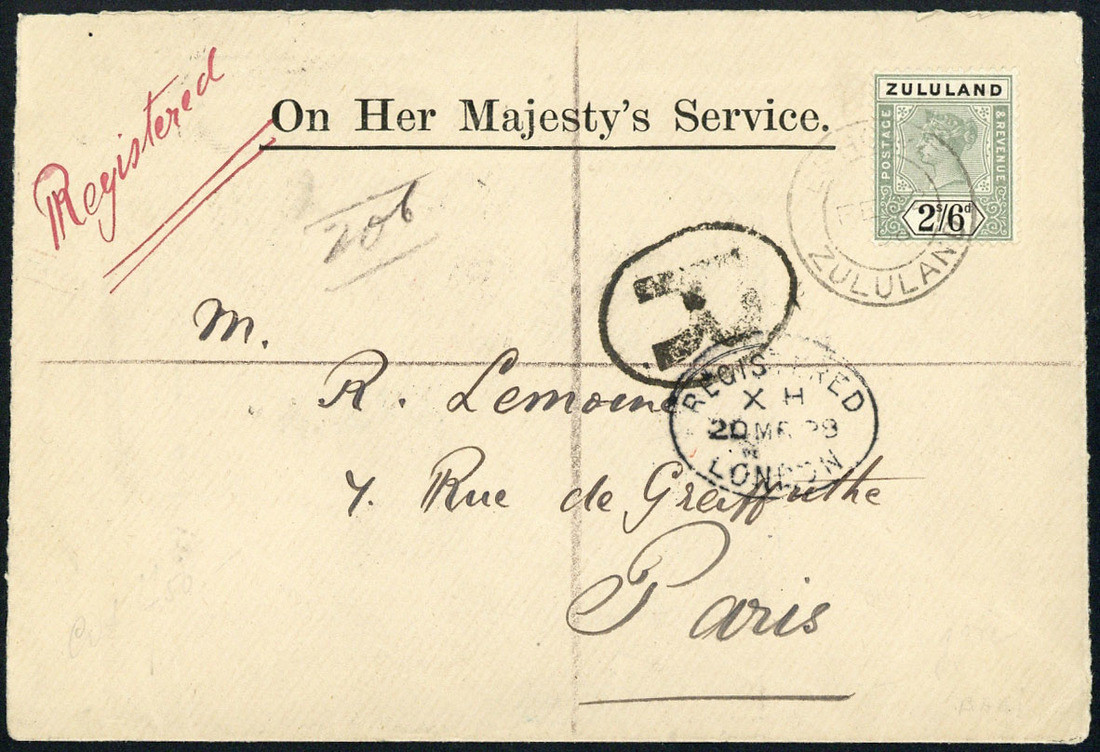 Registered
On Her Majesty's Service.
ZULULAND
POSTAGE
& REVENUE
2s/6d
ZULULAND
206
R
M.
R. Lemoine
REGISTERED
X H
20 MR 98
LONDON
7. Rue de Greffulhe
Paris